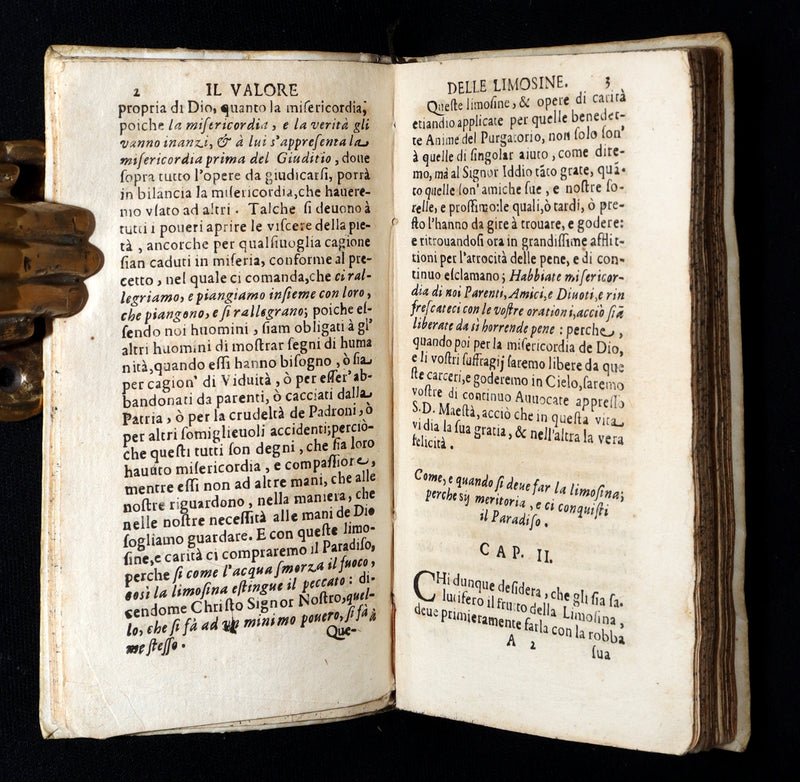 2 IL VALORE
propria di Dio, quanto la miſericordia;
poiche la miſericordia, e la verità gli
vanno inanzi, & à lui s'appreſenta la
miſericordia prima del Giuditio, doue
ſopra tutto l'opere da giudicarſi, porrà
in bilancia la miſericordia, che hauere-
mo vſato ad altri. Talche ſi deuono à
tutti i poueri aprire le viſcere della pie-
tà, ancorche per qualſiuoglia cagione
ſian caduti in miſeria, conforme al pre-
cetto, nel quale ci comanda, che ci ral-
legriamo, e piangiamo inſieme con loro,
che piangono, e ſi rallegrano; poiche eſ-
ſendo noi huomini, ſiam obligati à gl'
altri huomini di moſtrar ſegni di huma
nità, quando eſſi hanno biſogno, ò ſia
per cagion' di Viduità, ò per eſſer' ab-
bandonati da parenti, ò cacciati dalla
Patria, ò per la crudeltà de Padroni, ò
per altri ſomiglieuoli accidenti; perciò-
che queſti tutti ſon degni, che ſia loro
hauuto miſericordia, e compaſſione,
mentre eſſi non ad altre mani, che alle
noſtre riguardono, nella maniera, che
nelle noſtre neceſſità alle mani de Dio
ſogliamo guardare. E con queſte limo-
ſine, e carità ci compraremo il Paradiſo,
perche ſi come l'acqua ſmorza il fuoco,
così la limoſina eſtingue il peccato: di-
cendome Chriſto Signor Noſtro, quel-
lo, che ſi fà ad un minimo pouero, ſi fà à
me ſteſſo. Que-
DELLE LIMOSINE. 3
Queſte limoſine, & opere di carità
etiandio applicate per quelle benedet-
te Anime del Purgatorio, non ſolo ſon'
à quelle di ſingolar aiuto, come dire-
mo, mà al Signor Iddio tãto grate, quã-
to quelle ſon' amiche ſue, e noſtre ſo-
relle, e proſſimo: le quali, ò tardi, ò pre-
ſto l'hanno da gire à trouare, e godere:
e ritrouandoſi ora in grandiſſime afflit-
tioni per l'atrocità delle pene, e di con-
tinuo eſclamano; Habbiate miſericor-
dia di noi Parenti, Amici, e Diuoti, e rin
freſcateci con le voſtre orationi, acciò ſia
liberate da sì horrende pene: perche,
quando poi per la miſericordia de Dio,
e li voſtri ſuffragij ſaremo libere da que
ſte carceri, e goderemo in Cielo, ſaremo
voſtre di continuo Auuocate appreſſo
S. D. Maeſtà, acciò che in queſta vita
vi dia la ſua gratia, & nell'altra la vera
felicità.
Come, e quando ſi deue far la limoſina;
perche sij meritoria, e ci conquiſti
il Paradiſo.
CAP. II.
CHi dunque deſidera, che gli ſia ſa-
lutifero il frutto della Limoſina,
deue primieramente farla con la robba
A 2 ſua